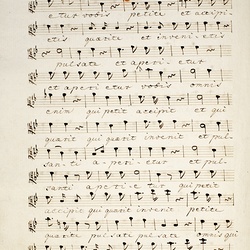 etur vobis petite et accipi-
etis quærite et invenietis
pulsate et aperietur
et aperietur vobis omnis
enim qui petit accipit et qui
quærit qui quærit invenit et pul-
santi aperietur et pul-
santi aperietur qui petit
accipit qui quærit invenit petite
quærite pulsate pulsate omnis qui